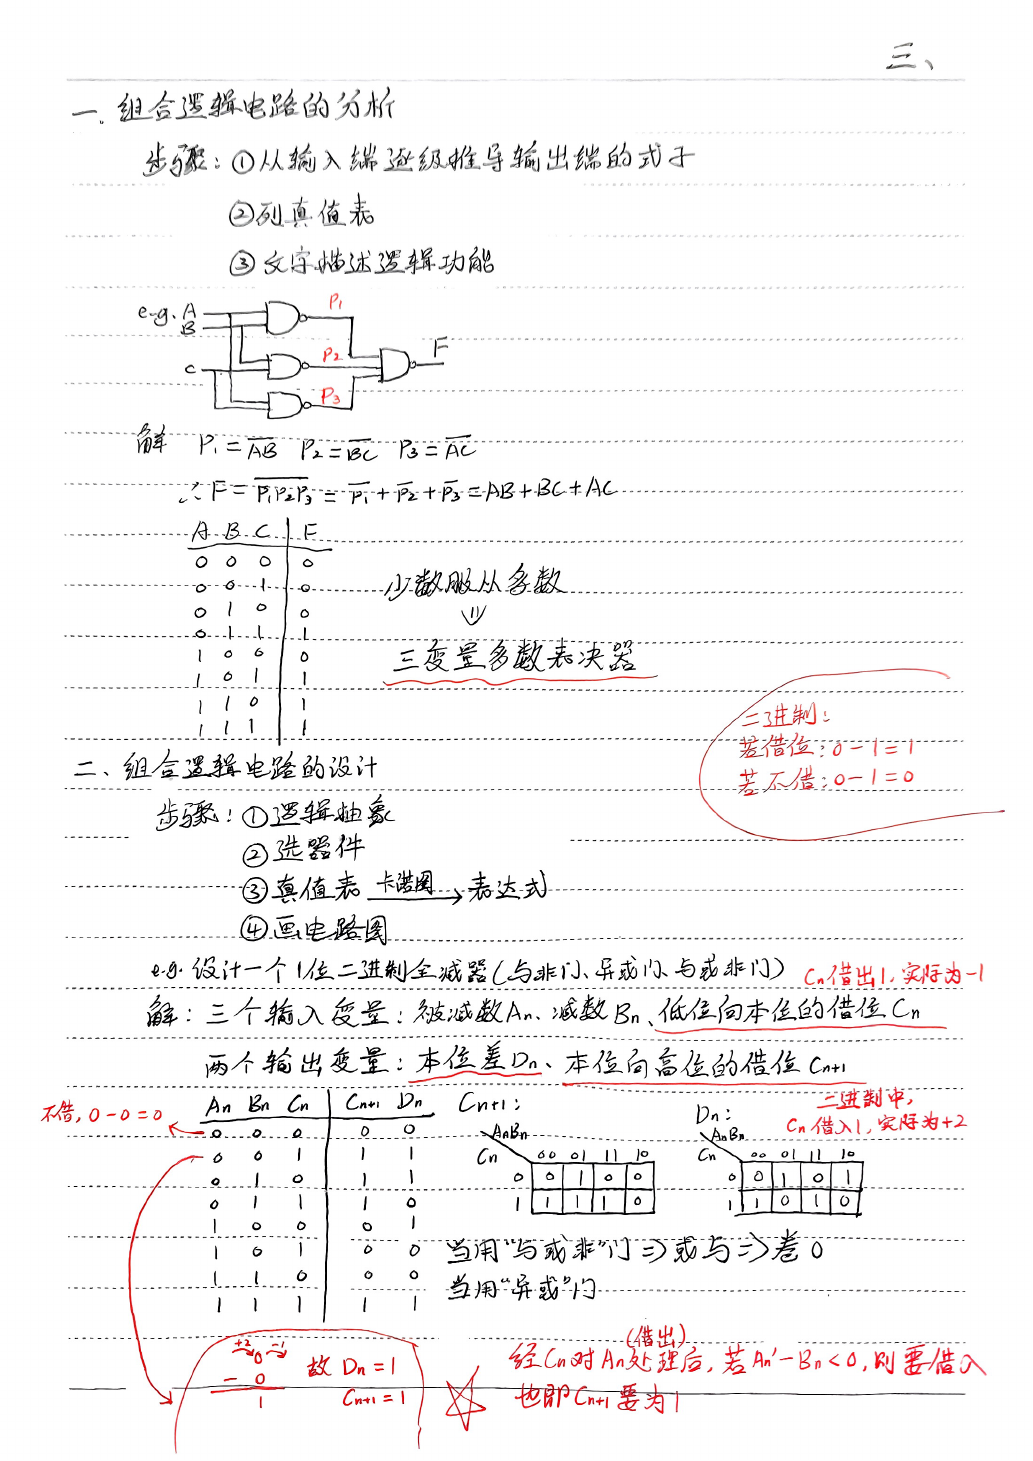 三、
一、组合逻辑电路的分析
步骤：①从输入端逐级推导输出端的式子
②列真值表
③文字描述逻辑功能
e.g. A
B
C
P₁
P₂
P₃
F
解 P₁=A̅B̅ P₂=B̅C̅ P₃=A̅C̅
∴F=P̅₁̅P̅₂̅P̅₃̅=P̅₁+P̅₂+P̅₃=AB+BC+AC
A B C F
0 0 0 0
0 0 1 0
0 1 0 0
0 1 1 1
1 0 0 0
1 0 1 1
1 1 0 1
1 1 1 1
少数服从多数
⇓
三变量多数表决器
二进制：
若借位：0-1=1
若不借：0-1=0
二、组合逻辑电路的设计
步骤：①逻辑抽象
②选器件
③真值表 卡诺图→表达式
④画电路图
e.g. 设计一个1位二进制全减器(与非门、异或门、与或非门)
Cn借出1,实际为-1
解：三个输入变量：被减数An、减数Bn、低位向本位的借位Cn
两个输出变量：本位差Dn、本位向高位的借位Cn+1
不借,0-0=0
An Bn Cn Cn+1 Dn
0 0 0 0 0
0 0 1 1 1
0 1 0 1 1
0 1 1 1 0
1 0 0 0 1
1 0 1 0 0
1 1 0 0 0
1 1 1 1 1
Cn+1:
AnBn
Cn 00 01 11 10
0 0 1 0 0
1 1 1 1 0
二进制中,
Cn借入1,实际为+2
Dn:
AnBn
Cn 00 01 11 10
0 0 1 0 1
1 1 0 1 0
当用"与或非"门⇒或与⇒卷0
当用"异或"门
+2 -1
0
- 0
1
故 Dn=1
Cn+1=1
(借出)
经Cn对An处理后,若An'-Bn<0,则要借入
也即Cn+1要为1